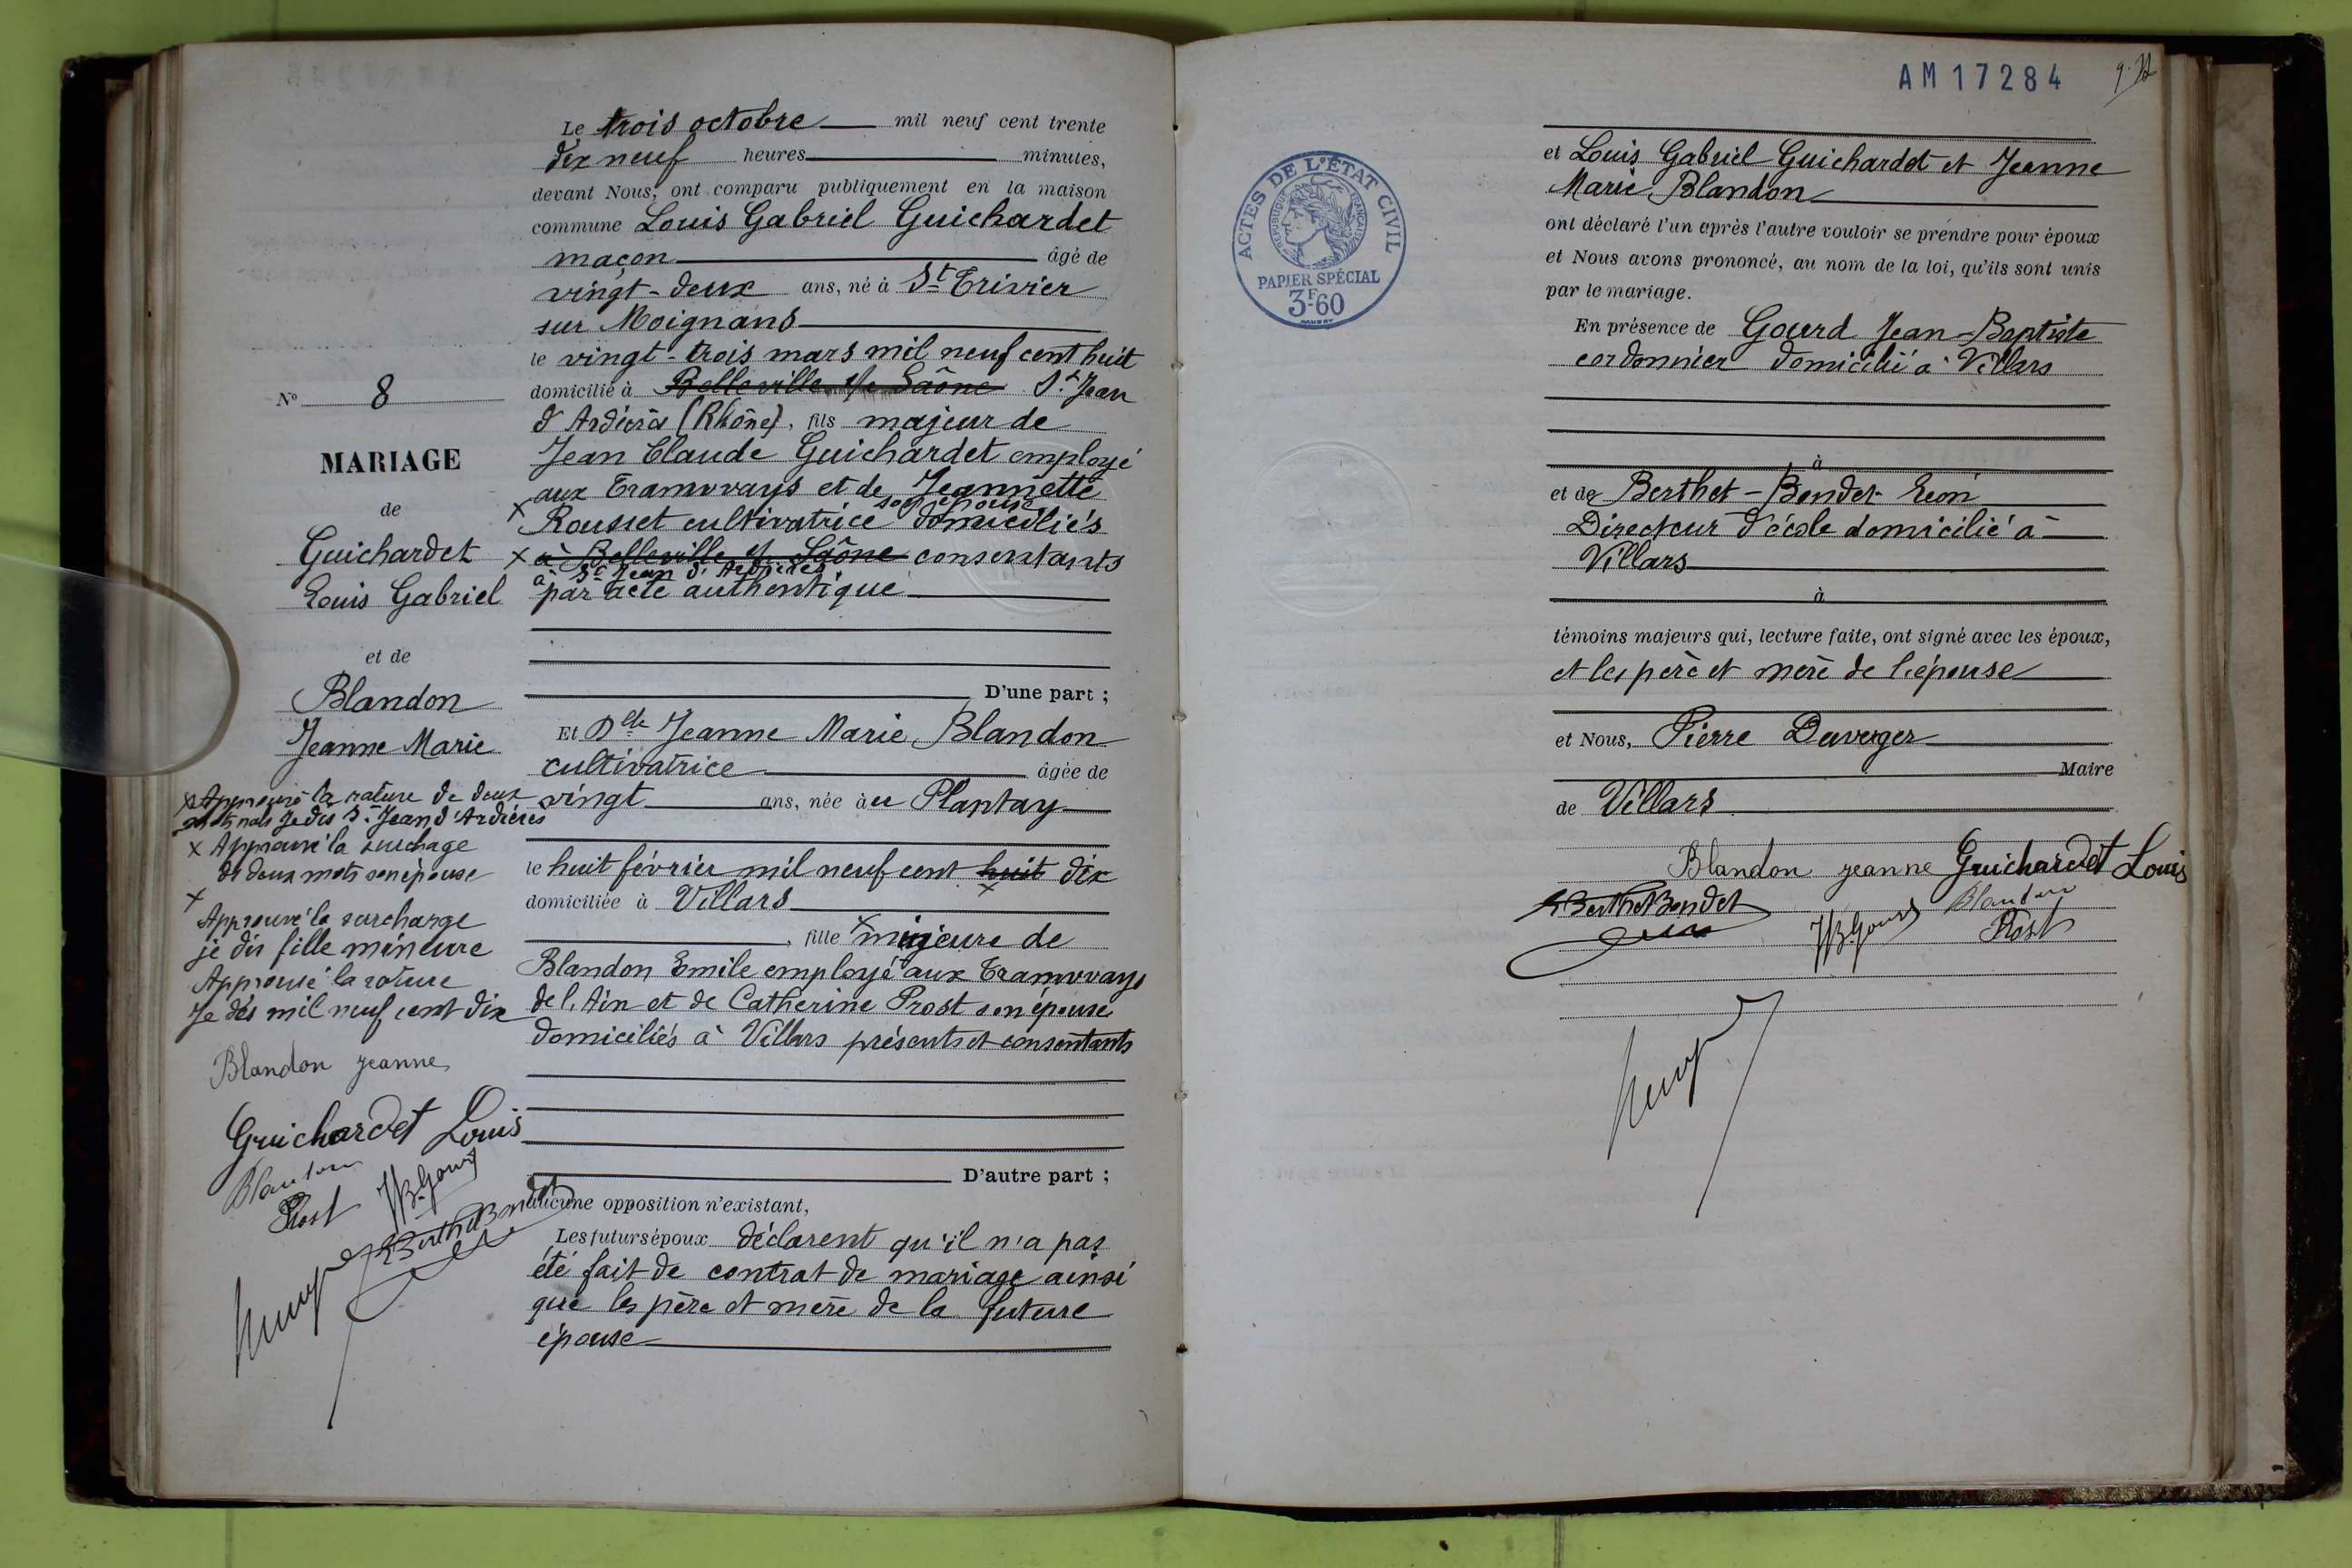 N° 8
MARIAGE
de
Guichardet
Louis Gabriel
et de
Blandon
Jeanne Marie
x Approuvé la rature de deux
mots nuls Je dis St Jean d'Ardières
x Approuvé la surchage
de deux mots son épouse
x
Approuvé la surcharge
je dis fille mineure
Approuvé la rature
Je dis mil neuf cent dix
Blandon jeanne
Guichardet Louis
Blandon
Prost JB Gourd
Berthet Bondet
Le trois octobre mil neuf cent trente
dix neuf heures minutes,
devant Nous, ont comparu publiquement en la maison
commune Louis Gabriel Guichardet
maçon âgé de
vingt-deux ans, né à St Trivier
sur Moignans
le vingt-trois mars mil neuf cent huit
domicilié à Belleville s/ Saône St Jean
d'Ardières (Rhône), fils majeur de
Jean Claude Guichardet employé
aux Tramways et de Jeannette
son épouse
x Rousset cultivatrice domiciliés
x à Belleville s/ Saône consentants
à St Jean d'Ardières
par acte authentique
D'une part ;
Et Dlle Jeanne Marie Blandon
cultivatrice âgée de
vingt ans, née àu Plantay
le huit février mil neuf cent huit dix
x
domiciliée à Villars
, fille x mineure de
Blandon Emile employé aux Tramways
de l'Ain et de Catherine Prost son épouse
domiciliés à Villars présents et consentants
D'autre part ;
aucune opposition n'existant,
Les futurs époux déclarent qu'il n'a pas
été fait de contrat de mariage ainsi
que les père et mère de la future
épouse
AM17284
ACTES DE L'ETAT CIVIL
REPUBLIQUE FRANÇAISE
PAPIER SPÉCIAL
3F-60
et Louis Gabriel Guichardet et Jeanne
Marie Blandon
ont déclaré l'un après l'autre vouloir se prendre pour époux
et Nous avons prononcé, au nom de la loi, qu'ils sont unis
par le mariage.
En présence de Gourd Jean-Baptiste
cordonnier domicilié à Villars
à
et de Berthet-Bondet Léon
Directeur d'école domicilié à
Villars
à
témoins majeurs qui, lecture faite, ont signé avec les époux,
et les père et mère de l'épouse
et Nous, Pierre Duverger
Maire
de Villars
Blandon jeanne Guichardet Louis
Berthet Bondet JB Gourd Blandon
Prost